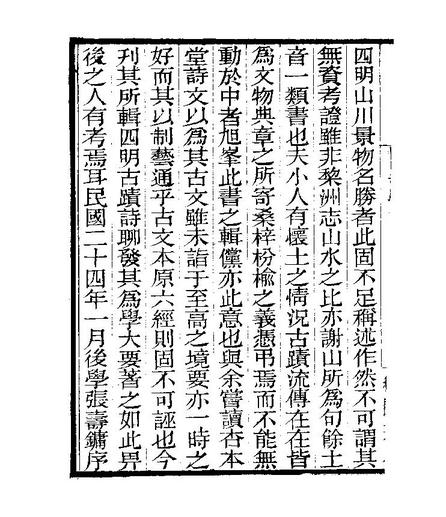 四明山川景物名勝者此固不足稱述作然不可謂其
無資考證雖非棃洲志山水之比亦謝山所爲句餘土
音一類書也夫小人有懷土之情況古蹟流傳在在皆
爲文物典章之所寄桑梓枌楡之義憑弔焉而不能無
動於中者旭峯此書之輯儻亦此意也與余嘗讀杏本
堂詩文以爲其古文雖未詣于至高之境要亦一時之
好而其以制藝通乎古文本原六經則固不可誣也今
刋其所輯四明古蹟詩聊發其爲學大要著之如此畀
後之人有考焉耳民國二十四年一月後學張壽鏞序